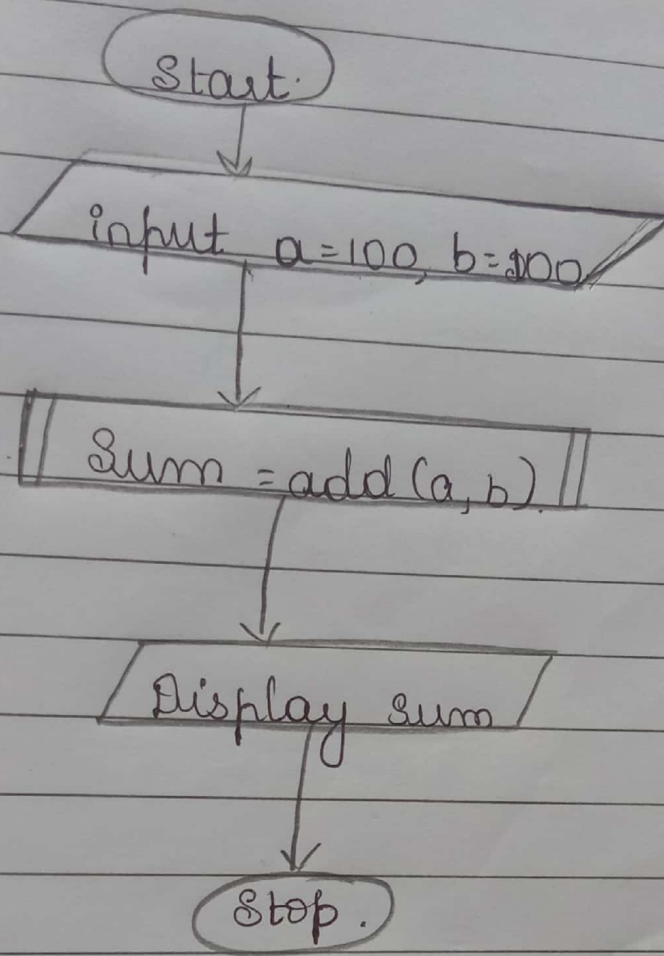 Start.
input a=100, b=100
Sum = add (a, b).
Display sum
Stop.